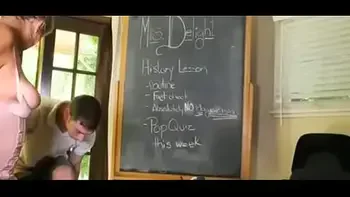 Miss Delight
History Lesson
- Routine
- Fact check
- Absolutely NO
- Pop Quiz
this week